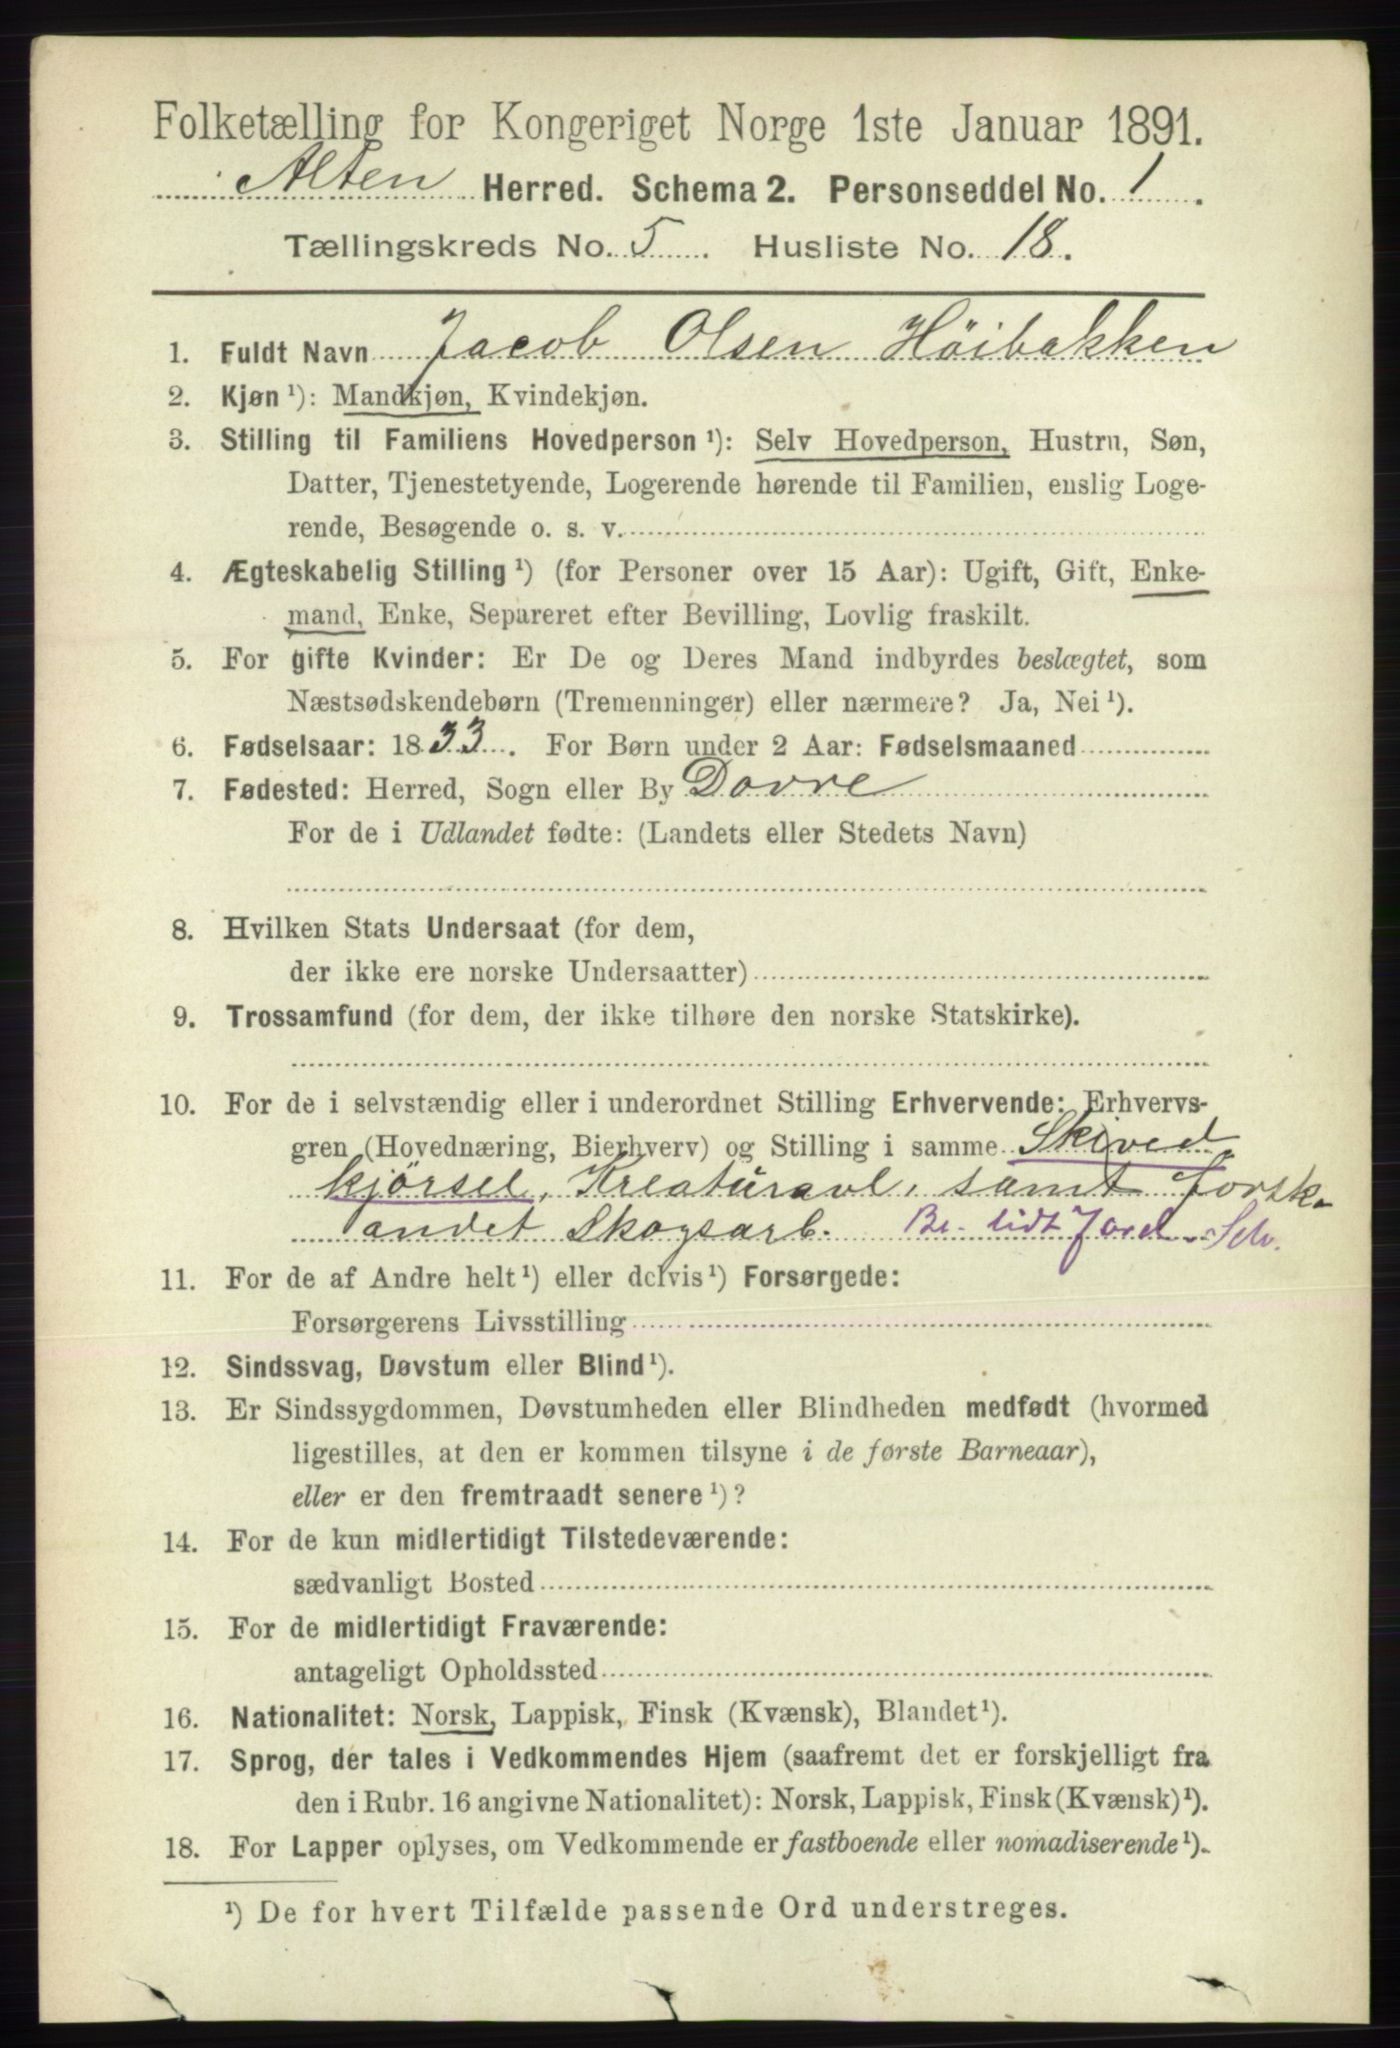 Folketælling for Kongeriget Norge 1ste Januar 1891.
Alten Herred. Schema 2. Personseddel No. 1.
Tællingskreds No. 5. Husliste No. 18.
1. Fuldt Navn Jacob Olsen Höibakken
2. Kjøn ¹): Mandkjøn, Kvindekjøn.
3. Stilling til Familiens Hovedperson ¹): Selv Hovedperson, Hustru, Søn,
Datter, Tjenestetyende, Logerende hørende til Familien, enslig Loge-
rende, Besøgende o. s. v.
4. Ægteskabelig Stilling ¹) (for Personer over 15 Aar): Ugift, Gift, Enke-
mand, Enke, Separeret efter Bevilling, Lovlig fraskilt.
5. For gifte Kvinder: Er De og Deres Mand indbyrdes beslægtet, som
Næstsødskendebørn (Tremenninger) eller nærmere? Ja, Nei ¹).
6. Fødselsaar: 1833. For Børn under 2 Aar: Fødselsmaaned
7. Fødested: Herred, Sogn eller By Dovre
For de i Udlandet fødte: (Landets eller Stedets Navn)
8. Hvilken Stats Undersaat (for dem,
der ikke ere norske Undersaatter)
9. Trossamfund (for dem, der ikke tilhøre den norske Statskirke).
10. For de i selvstændig eller i underordnet Stilling Erhvervende: Erhvervs-
gren (Hovednæring, Bierhverv) og Stilling i samme Skived
kjörsel, Kreaturavl, samt forsk-
andet Skogsarb. Be. lidt Jord. Selv.
11. For de af Andre helt ¹) eller delvis ¹) Forsørgede:
Forsørgerens Livsstilling
12. Sindssvag, Døvstum eller Blind ¹).
13. Er Sindssygdommen, Døvstumheden eller Blindheden medfødt (hvormed
ligestilles, at den er kommen tilsyne i de første Barneaar),
eller er den fremtraadt senere ¹)?
14. For de kun midlertidigt Tilstedeværende:
sædvanligt Bosted
15. For de midlertidigt Fraværende:
antageligt Opholdssted
16. Nationalitet: Norsk, Lappisk, Finsk (Kvænsk), Blandet ¹).
17. Sprog, der tales i Vedkommendes Hjem (saafremt det er forskjelligt fra
den i Rubr. 16 angivne Nationalitet): Norsk, Lappisk, Finsk (Kvænsk) ¹).
18. For Lapper oplyses, om Vedkommende er fastboende eller nomadiserende ¹).
¹) De for hvert Tilfælde passende Ord understreges.